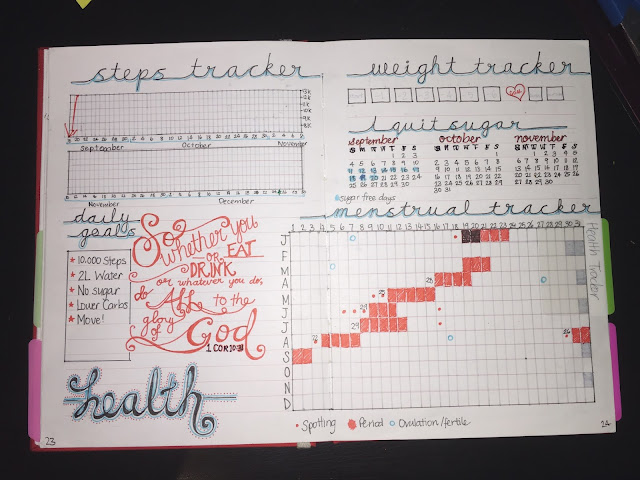 steps tracker
13k
12k
11k
10k
9k
8k
September October November
November December
daily
goals
★ 10.000 Steps
★ 2L Water
★ No sugar
★ Lower Carbs
★ Move!
So
whether you
EAT
OR
DRINK
or whatever you do,
do ALL to the
glory
of God
1 COR 10:31
health
23
weight tracker
I quit sugar
september october november
S M T W T F S S M T W T F S S M T W T F S
1 2 3 1 1 2 3 4 5
4 5 6 7 8 9 10 2 3 4 5 6 7 8 6 7 8 9 10 11 12
11 12 13 14 15 16 17 9 10 11 12 13 14 15 13 14 15 16 17 18 19
18 19 20 21 22 23 24 16 17 18 19 20 21 22 20 21 22 23 24 25 26
25 26 27 28 29 30 23 24 25 26 27 28 29 27 28 29 30
30 31
sugar free days
menstrual tracker
1 2 3 4 5 6 7 8 9 10 11 12 13 14 15 16 17 18 19 20 21 22 23 24 25 26 27 28 29 30 31
J
F
M
A 28
M
J 29
J 29
A 26 26
S
O
N
D
Spotting Period Ovulation/fertile
24
Health Tracker